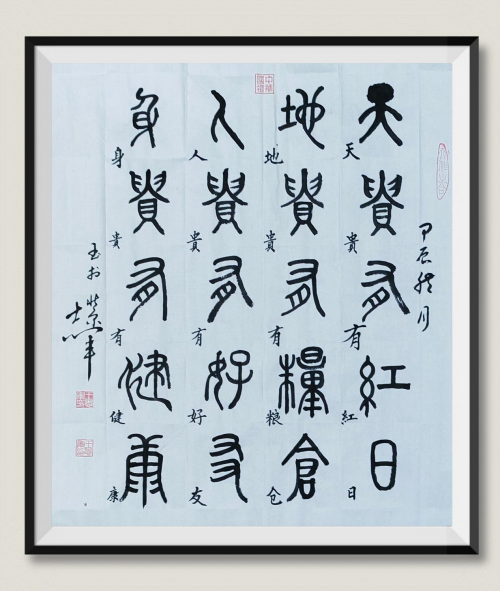 甲辰月
天貴有紅日
天貴有紅日
地貴有糧倉
地貴有粮仓
人貴有好友
人貴有好友
身貴有健康
身貴有健康